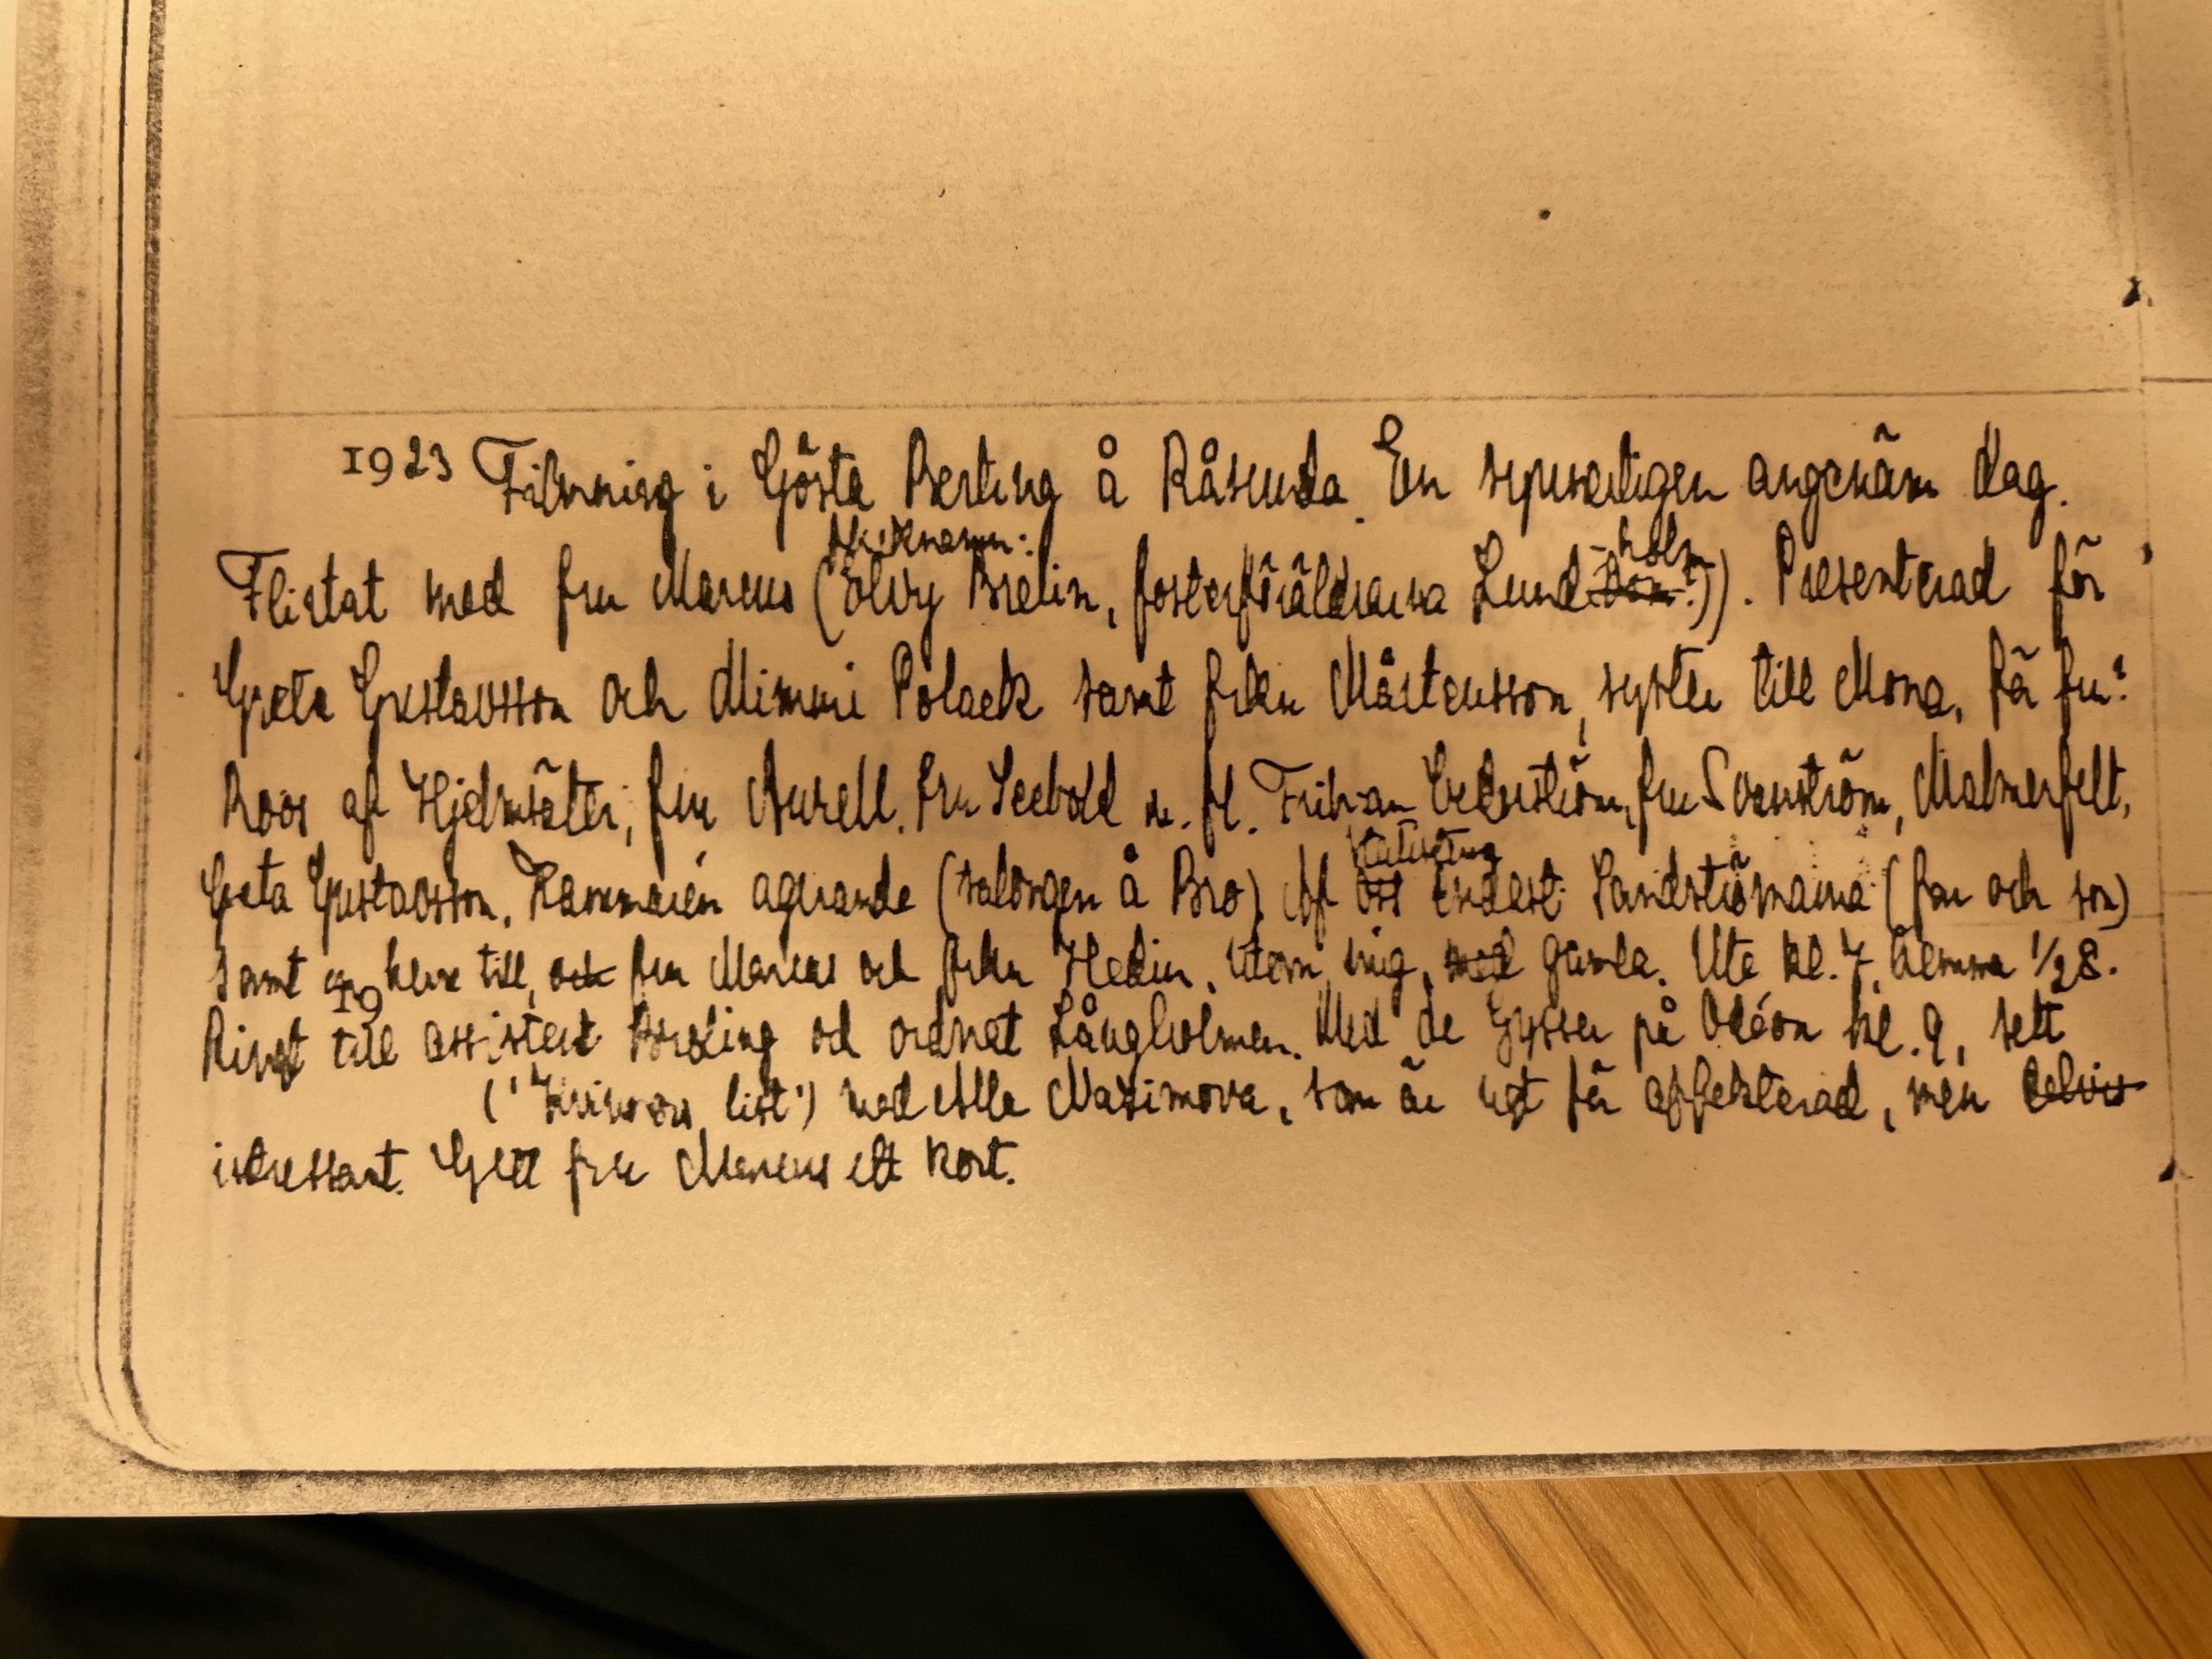 1923 Filmning i Gösta Berling å Råsunda. En synnerligen angenäm dag.
Fliknamn:
-holm
Flirtat med fru Marcus (Elvy Brelin, fosterföräldrarna Lund)). Presenterad för
Greta Gustavsson och Mimmi Polack samt frkn Mårtensson, syster till Mona, fr fru?
Roos af Hjelmsäter, fru Aurell. Fru Seebold m. fl. Frih:an Cederström, fru Svenström, Malmerfelt,
Greta Gustavsson, Hammarén agerande (salongen å Bro). Af oss endast Sandströmarna (fru och son)
samt en herre till, och fru Marcus och frkn Hedin, utom mig, med gamla. Ute kl. 7, hemma 1/2 8.
19
Ringt till assistent Broling och ordnat Långholmen. Med de Gysser på Odéon kl. 9, sett
("Kvinnors list") med Alla Nazimova, som är ngt för affekterad, men
intressant. Gett fru Marcus ett kort.